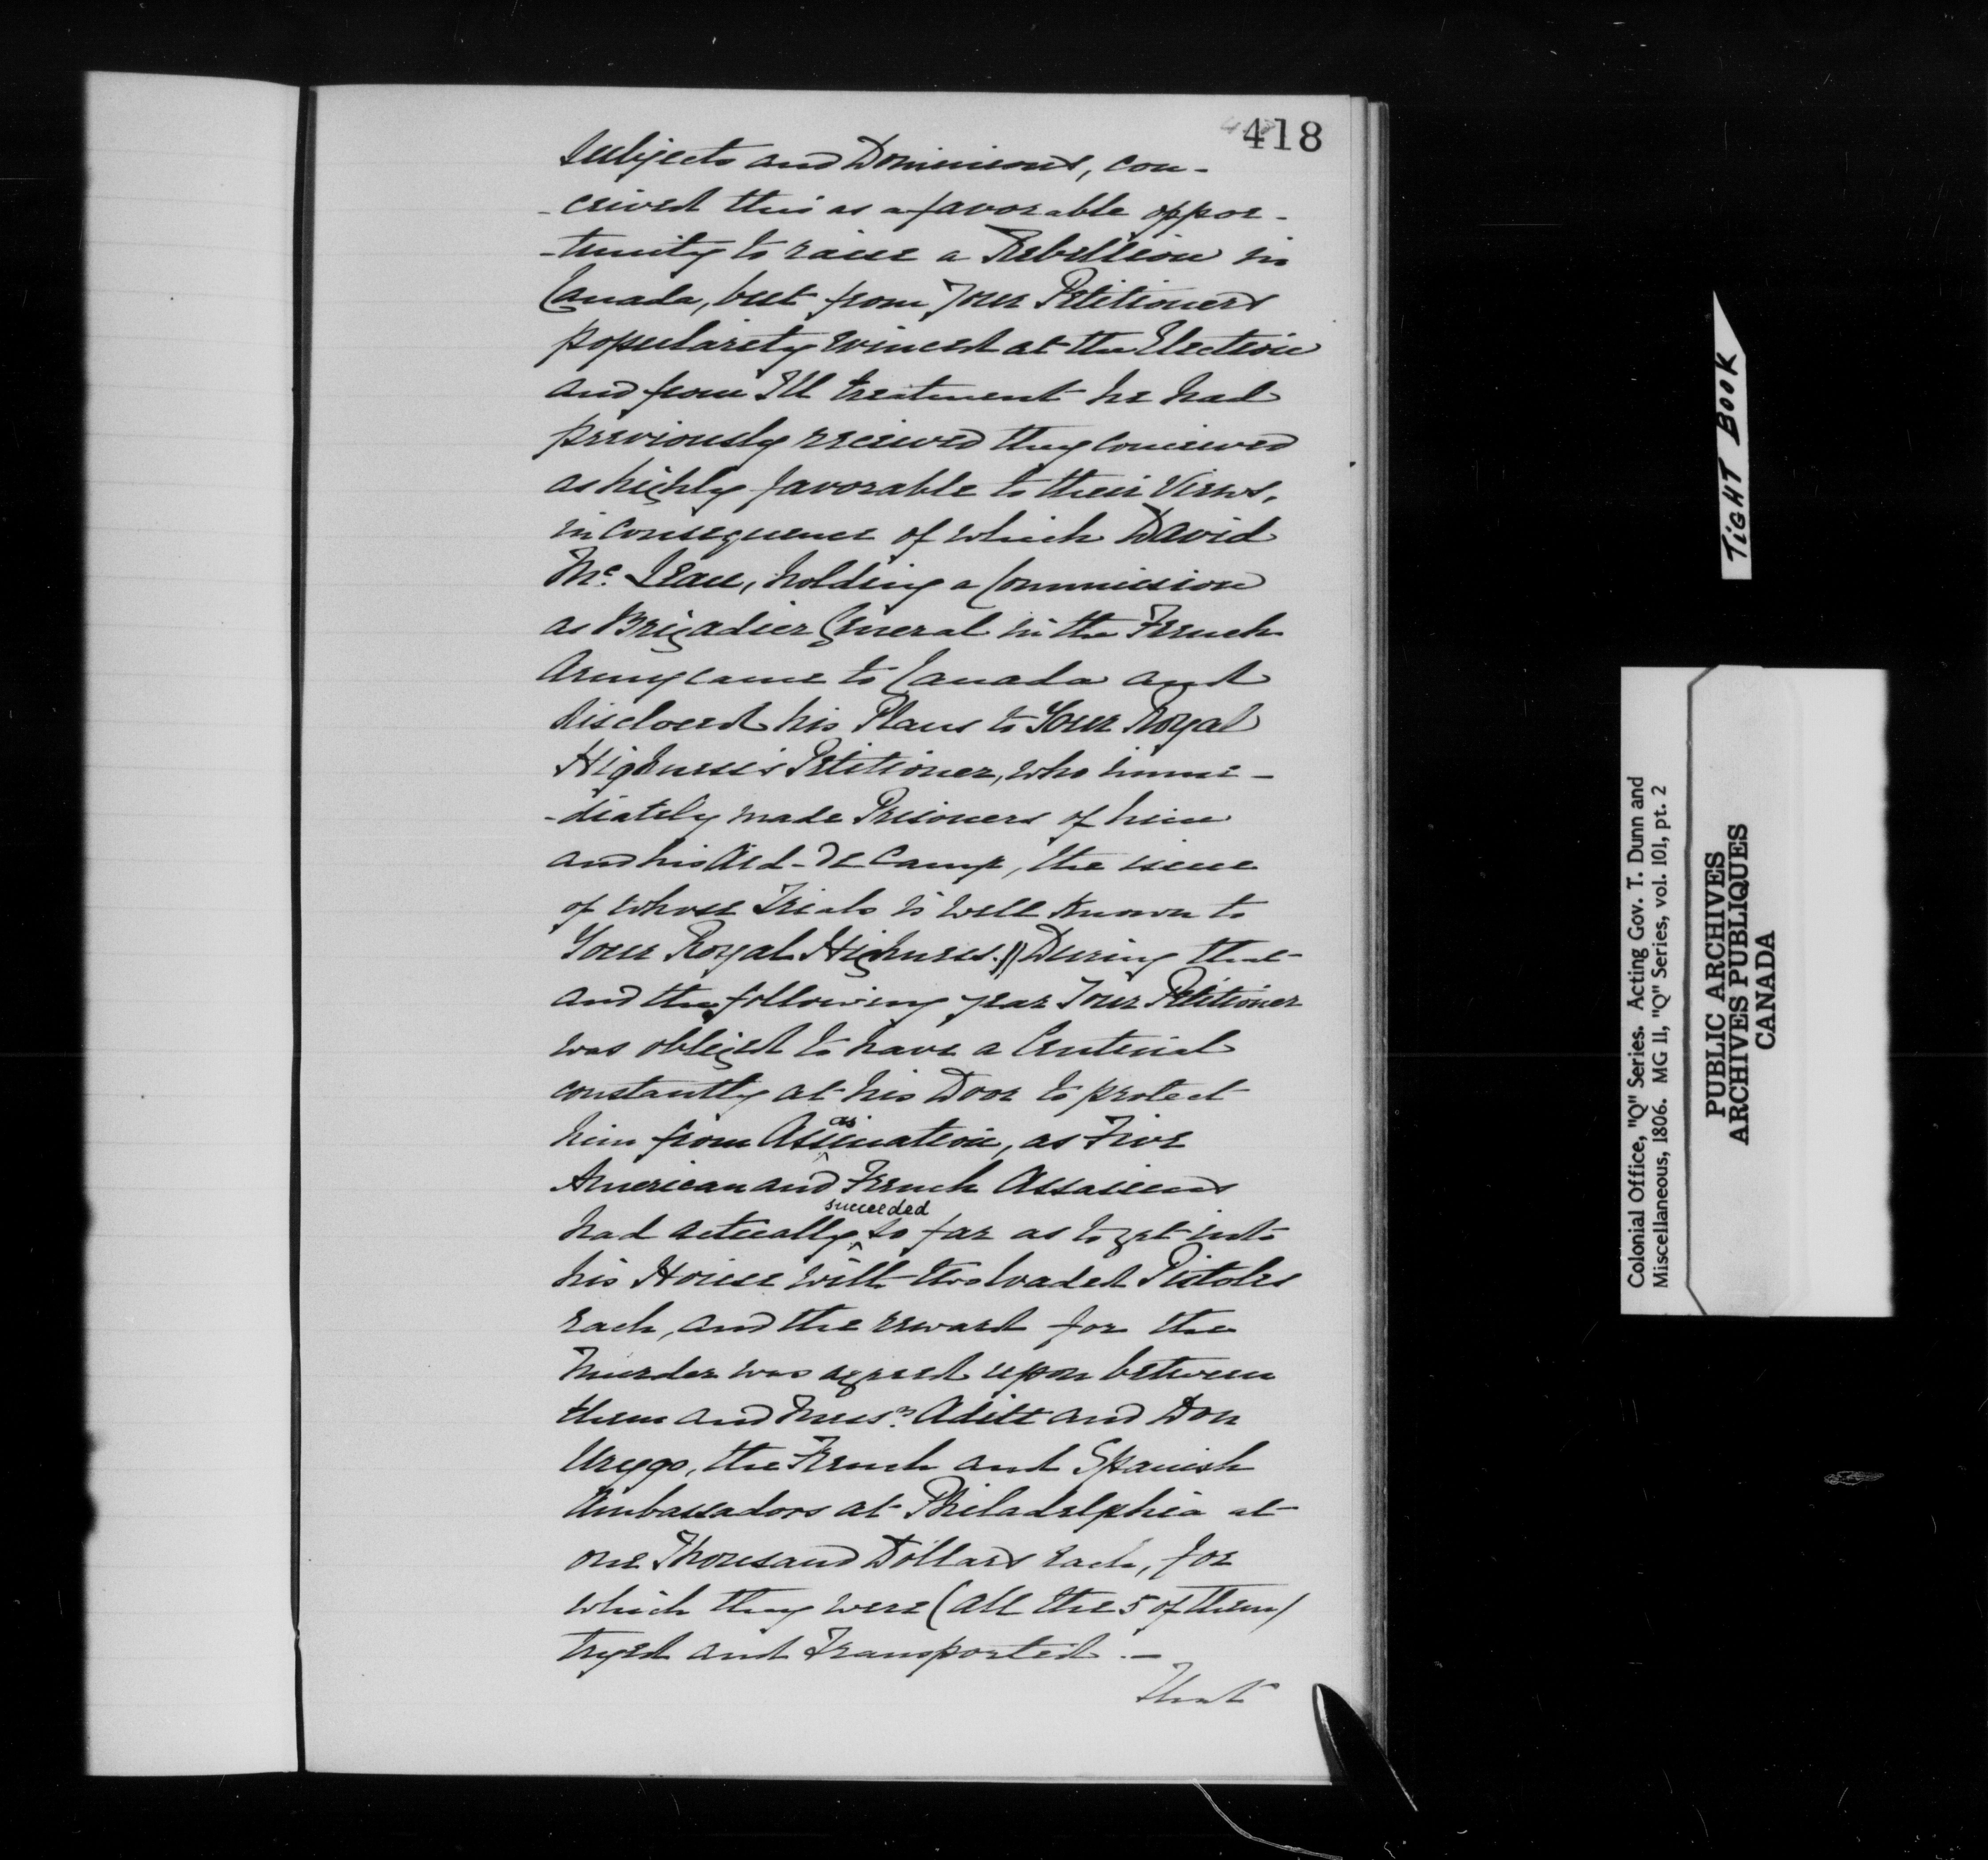 418
Subjects and Dominions, con-
-ceived this as a favorable oppor-
-tunity to raise a Rebellion in
Canada, but from Your Petitioners
popularity evinced at the Election
and from Ill treatment he had
previously received they conceived
as highly favorable to their Views,
in consequence of which David
Mc. Lane, holding a Commission
as Brigadier General in the French
Army came to Canada and
disclosed his Plans to Your Royal
Highness's Petitioner, who imme-
-diately made Prisoners of him
and his Aid-de Camp, the issue
of whose Trials is well known to
Your Royal Highness.)) During that
and the following year Your Petitioner
was obliged to have a Centinal
constantly at his Door to protect
him from Ass^as^ination, as Five
American and French Assassins
had actually ^succeeded^ so far as to get into
his House with two loaded Pistoles
each, and the reward for the
Murder was agreed upon between
them and Mess.rs Aditt and Don
Urygo, the French and Spanish
Ambassadors at Philadelphia at
one Thousand Dollars each, for
which they were (all the 5 of them)
tryed and Transported.—
That
TIGHT BOOK
Colonial Office, "Q" Series. Acting Gov. T. Dunn and
Miscellaneous, 1806. MG 11, "Q" Series, vol. 101, pt. 2
PUBLIC ARCHIVES
ARCHIVES PUBLIQUES
CANADA